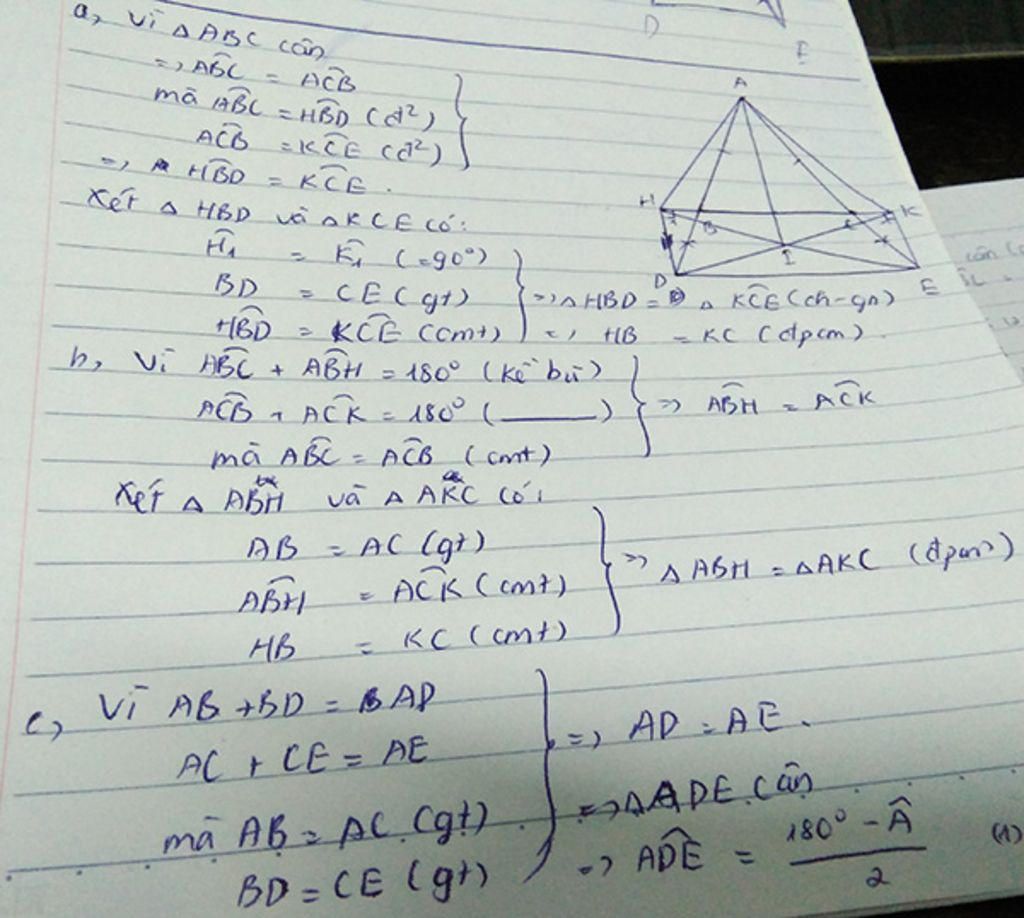 D
E
a, Vì △ABC cân
=> A͡BC = A͡CB
mà A͡BC = H͡BD (đ²)
A͡CB = K͡CE (đ²)
=> H͡BD = K͡CE.
Xét △ HBD và △KCE có:
Ĥ₁ = K̂₁ (=90°)
BD = CE (gt)
H͡BD = K͡CE (cmt)
=> △HBD = △ K͡CE (ch-gn)
=> HB = KC (đpcm).
A
H
K
B
C
I
D
E
b, Vì A͡BC + A͡BH = 180° (kề bù)
A͡CB + A͡CK = 180° (———)
mà A͡BC = A͡CB (cmt)
=> A͡BH = A͡CK
Xét △ ABH và △ AKC có:
AB = AC (gt)
A͡BH = A͡CK (cmt)
HB = KC (cmt)
=> △ ABH = △AKC (đpcm)
c, Vì AB + BD = AD
AC + CE = AE
mà AB = AC (gt)
BD = CE (gt)
=> AD = AE.
=> △ADE cân
=> A͡DE = (180° - Â)/2 (1)